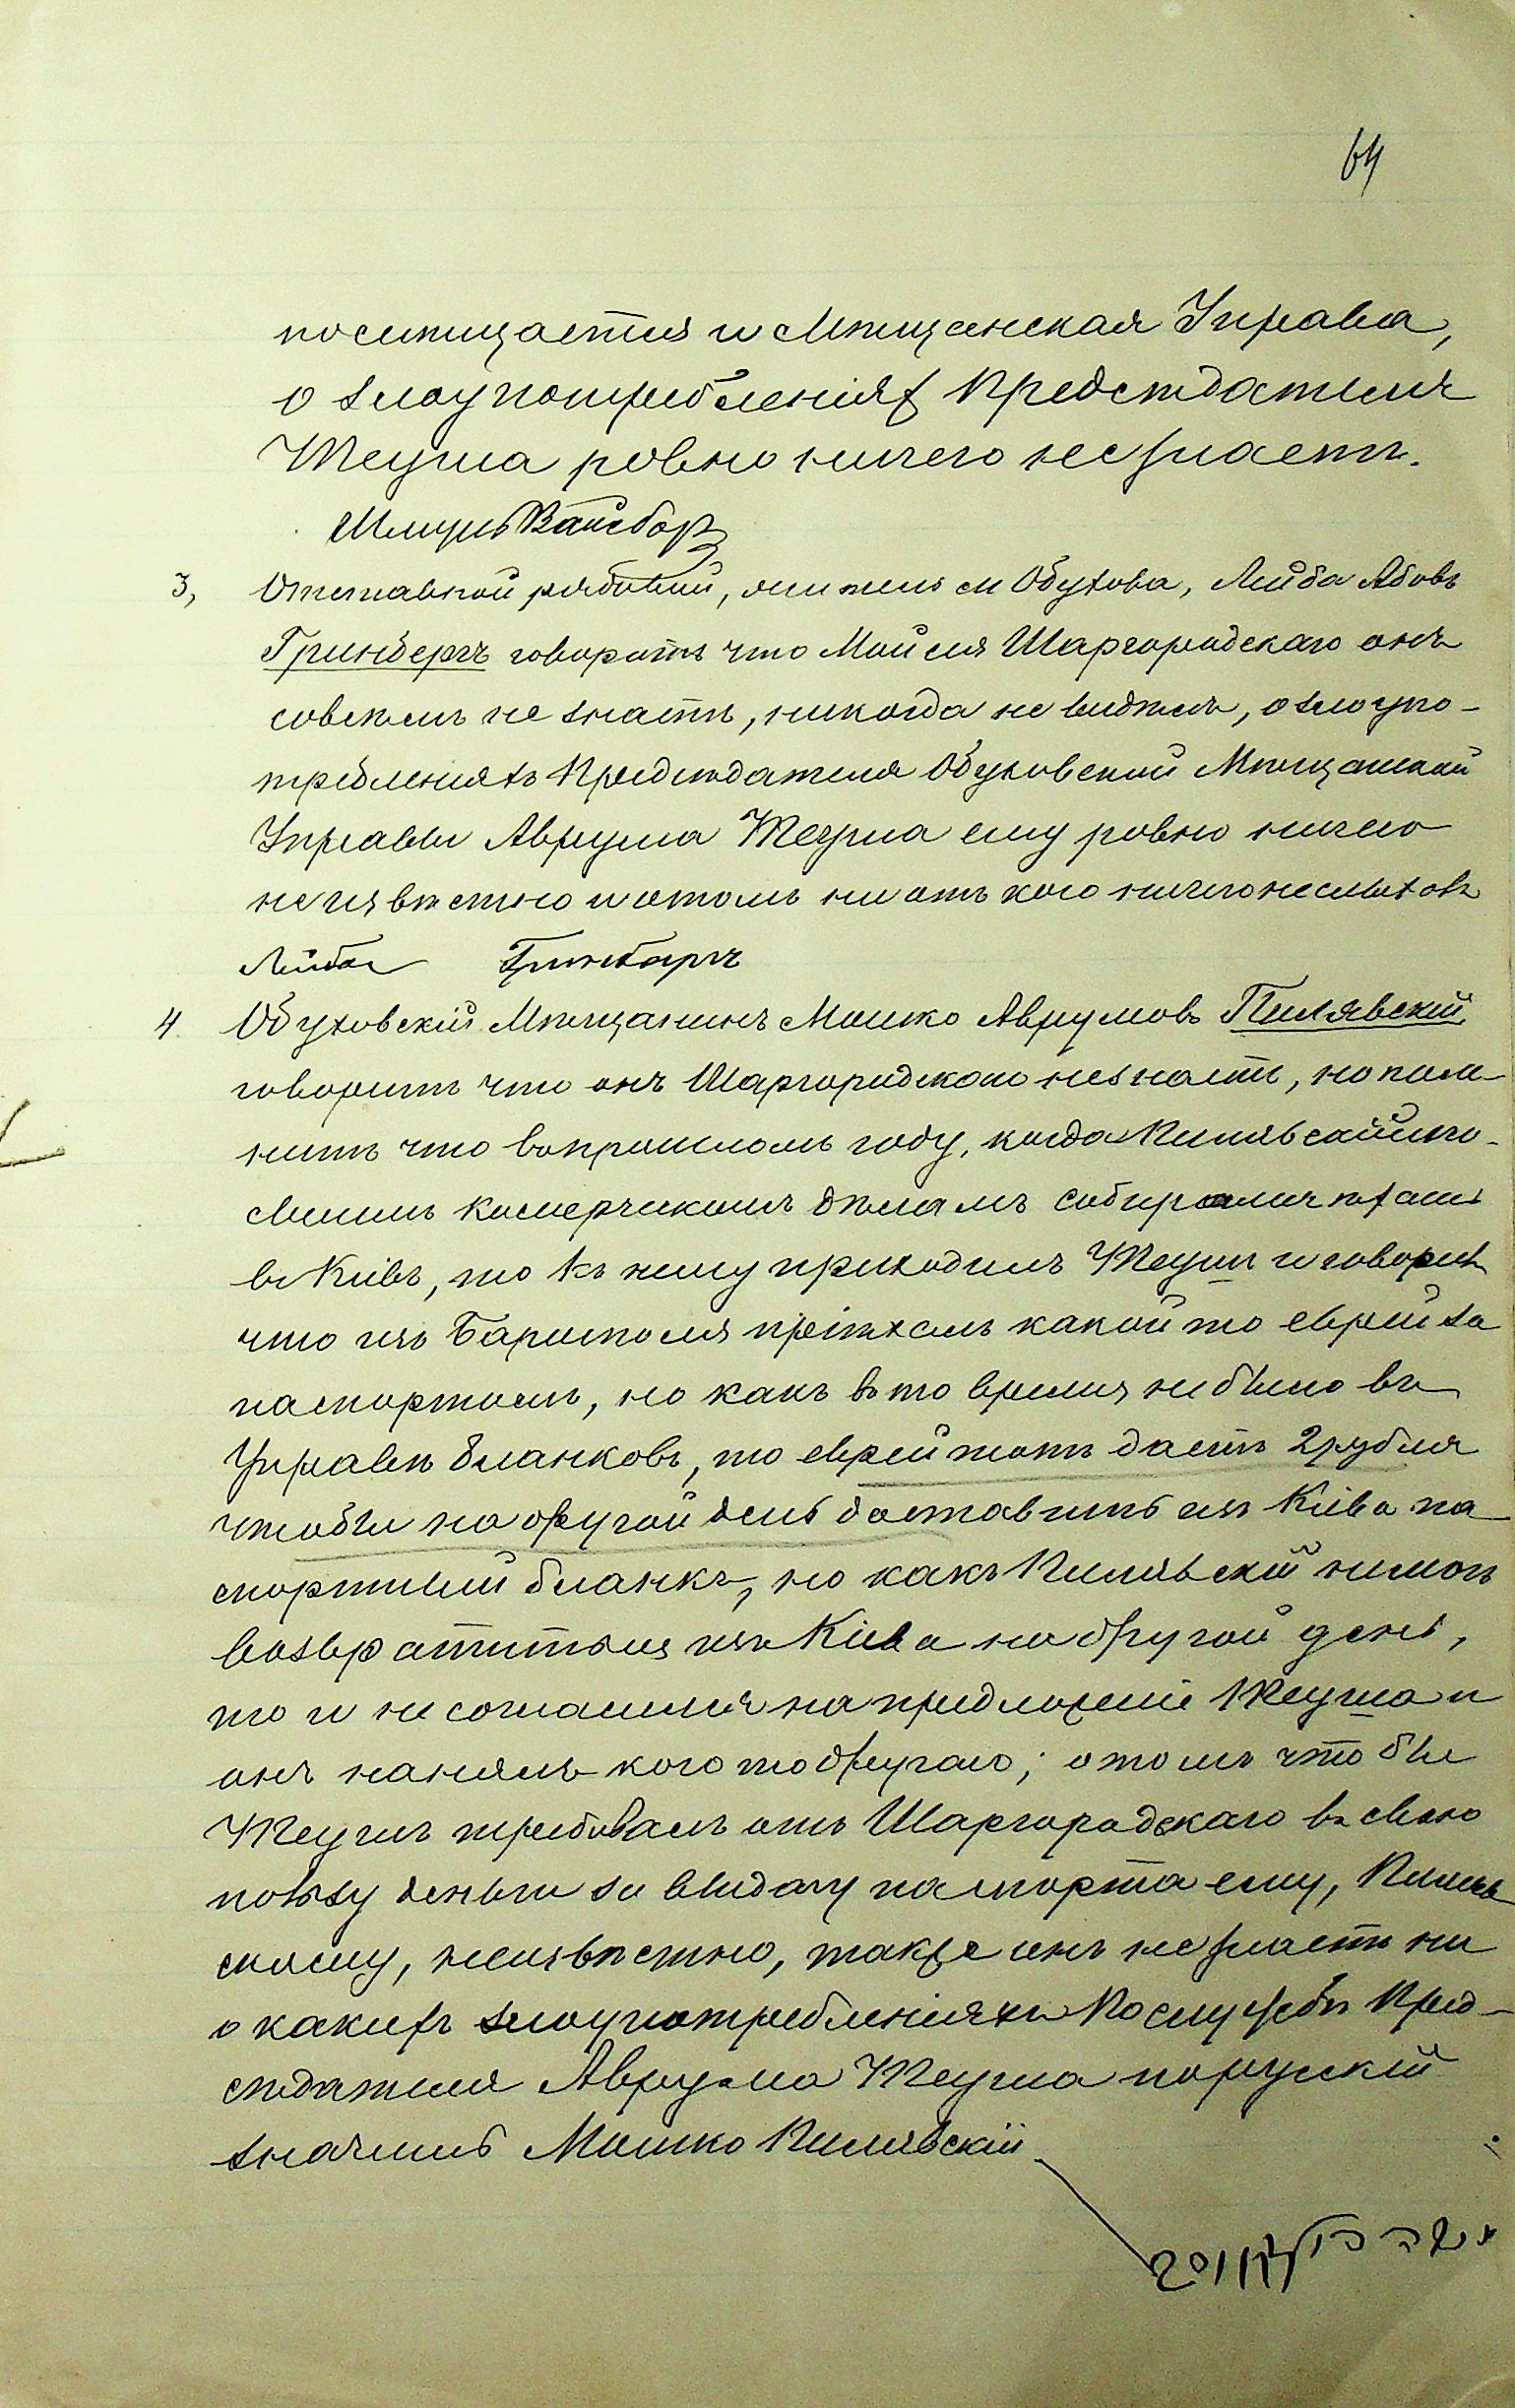 64
посѣщается и Мѣщанская Управа,
о злоупотребленіях Председателя
Теуша ровно ничего не знаетъ.
Вайсборз
3, Отставной рядовой, житель м Обухова, Лейба Абовъ
Гринбергъ говоритъ что Мойсея Шаргородскаго онъ
совсѣмъ не знаетъ, никогда не видѣлъ, о злоупо-
требленіяхъ Предсѣдателя Обуховской Мѣщанской
Управы Аврума Теуша ему ровно ничего
неизвѣстно и отомъ ни отъ кого ничего неслыхавъ
Лейба Гринбергъ
4 Обуховскій Мѣщанинъ Мошко Аврумовъ Пилявскій
говоритъ что онъ Шаргородскаго незнаетъ, но пом-
нитъ что впрошломъ году, когда Пилявскій по-
своимъ комерческимъ дѣламъ собирался ѣхать
въ Кіевъ, то къ нему приходилъ Теушъ и говорилъ
что изъ Барисполя пріѣхалъ какой то еврей за
паспортомъ, но какъ въ то время не было въ
Управѣ бланковъ, то еврей тотъ даетъ 2 рубля
чтобы на другой день доставить изъ Кіева па-
спортный бланкъ, но какъ Пилявскій не могъ
возвратиться изъ Кіева на другой день,
то и не согласился на предложеніе Теуша и
онъ нанялъ кого то другаго; о томъ что бы
Теушъ требовалъ отъ Шаргородскаго въ свою
пользу деньги за выдачу паспорта ему, Пиляв
скому, неизвѣстно, также онъ не знаетъ ни
о какихъ злоупотребленіяхъ по службѣ Пред-
сѣдателя Аврума Теуша порускій
значитъ Мошко Пилявскій